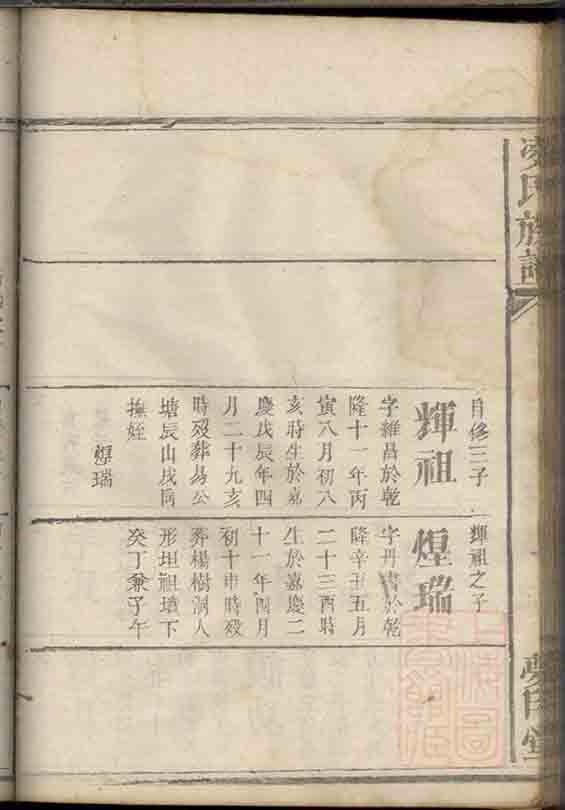 氏族譜
自修三子
輝祖
字維昌於乾
隆十一年丙
寅八月初八
亥時生於嘉
慶戊辰年四
月二十九亥
時歿葬易公
塘辰山戌向
撫姪
煋瑞
輝祖之子
煋瑞
字丹書於乾
隆辛丑五月
二十三酉時
生於嘉慶二
十一年四月
初十申時歿
葬楊樹洞人
形坦祖墳下
癸丁兼子午